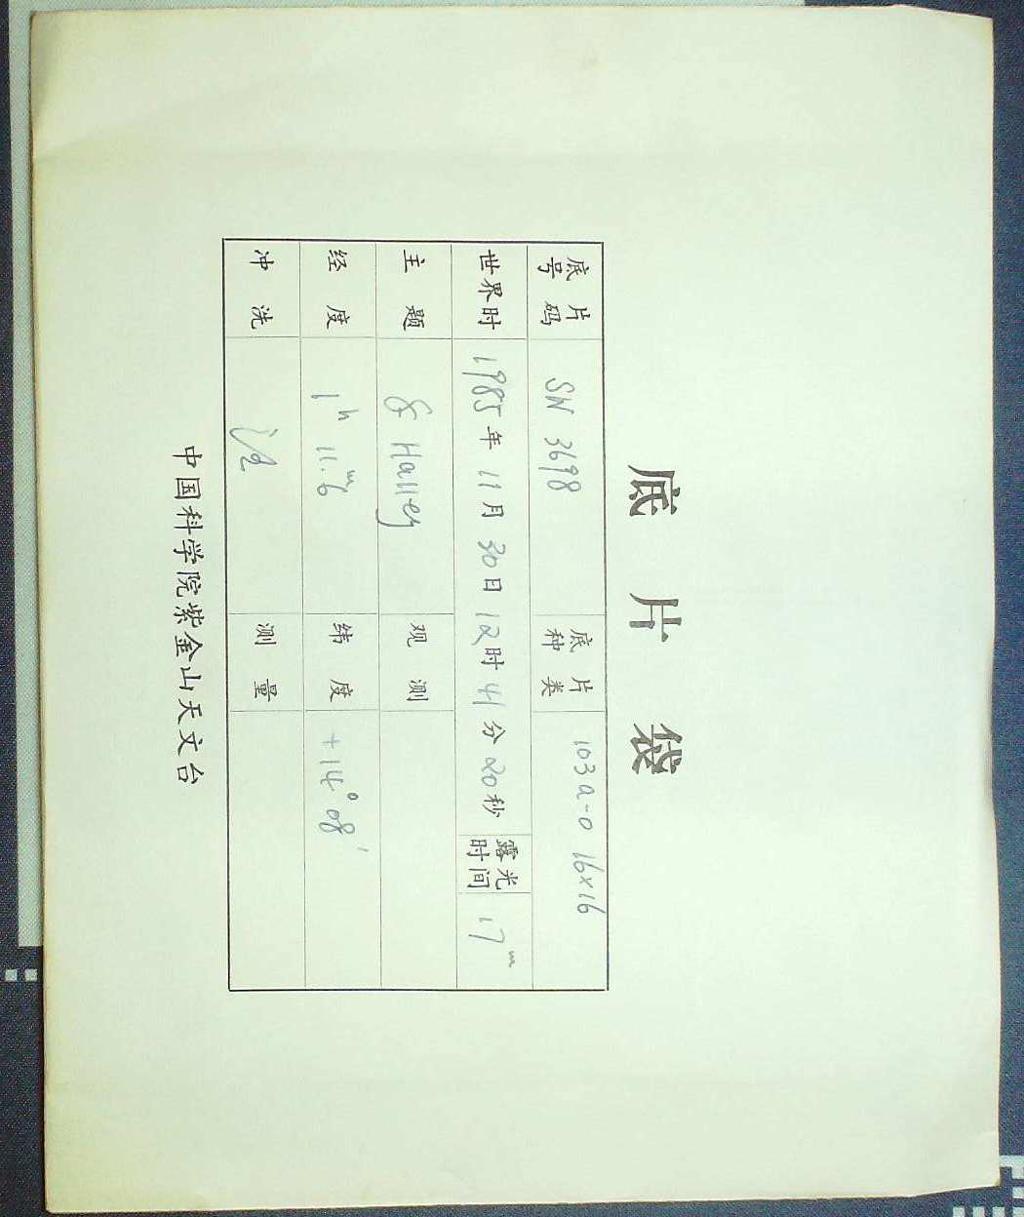 底片袋
底片号码 SN 3698 底片种类 103a-0 16×16
世界时 1985年11月30日12时41分20秒 露光时间 17m
主题 Halley 观测
经度 1h 11.m6 纬度 +14°08′
冲洗 测量
中国科学院紫金山天文台